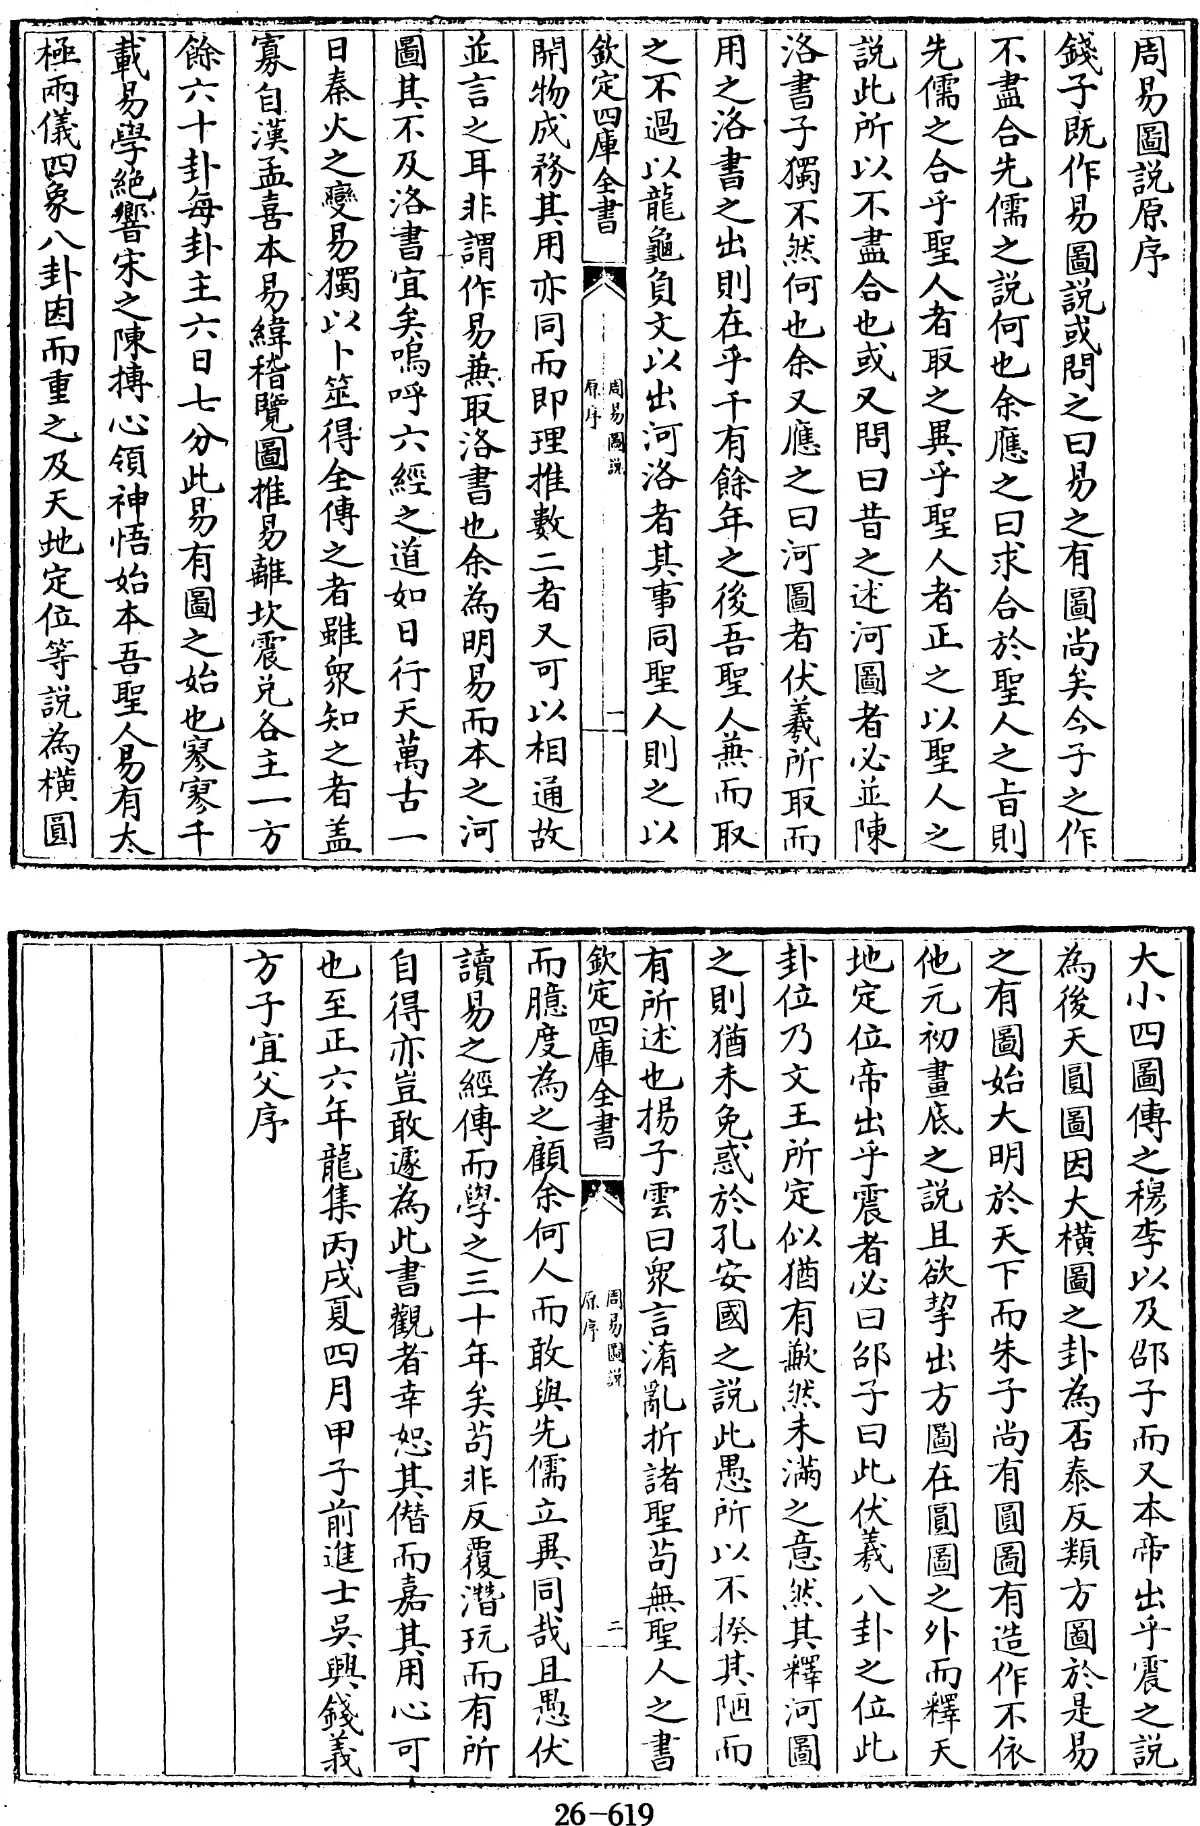 周易圖說原序
錢子既作易圖說或問之曰易之有圖尚矣今子之作
不盡合先儒之說何也余應之曰求合於聖人之旨則
先儒之合乎聖人者取之異乎聖人者正之以聖人之
說此所以不盡合也或又問曰昔之述河圖者必並陳
洛書子獨不然何也余又應之曰河圖者伏羲所取而
用之洛書之出則在乎千有餘年之後吾聖人兼而取
之不過以龍龜負文以出河洛者其事同聖人則之以
欽定四庫全書
周易圖說
原序
一
開物成務其用亦同而即理推數二者又可以相通故
並言之耳非謂作易兼取洛書也余為明易而本之河
圖其不及洛書宜矣嗚呼六經之道如日行天萬古一
日秦火之變易獨以卜筮得全傳之者雖眾知之者蓋
寡自漢孟喜本易緯稽覽圖推易離坎震兌各主一方
餘六十卦每卦主六日七分此易有圖之始也寥寥千
載易學絕響宋之陳摶心領神悟始本吾聖人易有太
極兩儀四象八卦因而重之及天地定位等說為橫圓
大小四圖傳之穆李以及邵子而又本帝出乎震之說
為後天圓圖因大橫圖之卦為否泰反類方圖於是易
之有圖始大明於天下而朱子尚有圓圖有造作不依
他元初畫底之說且欲挈出方圖在圓圖之外而釋天
地定位帝出乎震者必曰邵子曰此伏羲八卦之位此
卦位乃文王所定似猶有歉然未滿之意然其釋河圖
之則猶未免惑於孔安國之說此愚所以不揆其陋而
有所述也揚子雲曰眾言淆亂折諸聖茍無聖人之書
欽定四庫全書
周易圖說
原序
二
而臆度為之顧余何人而敢與先儒立異同哉且愚伏
讀易之經傳而學之三十年矣茍非反覆潛玩而有所
自得亦豈敢遽為此書觀者幸恕其僭而嘉其用心可
也至正六年龍集丙戌夏四月甲子前進士吳興錢義
方子宜父序
26-619